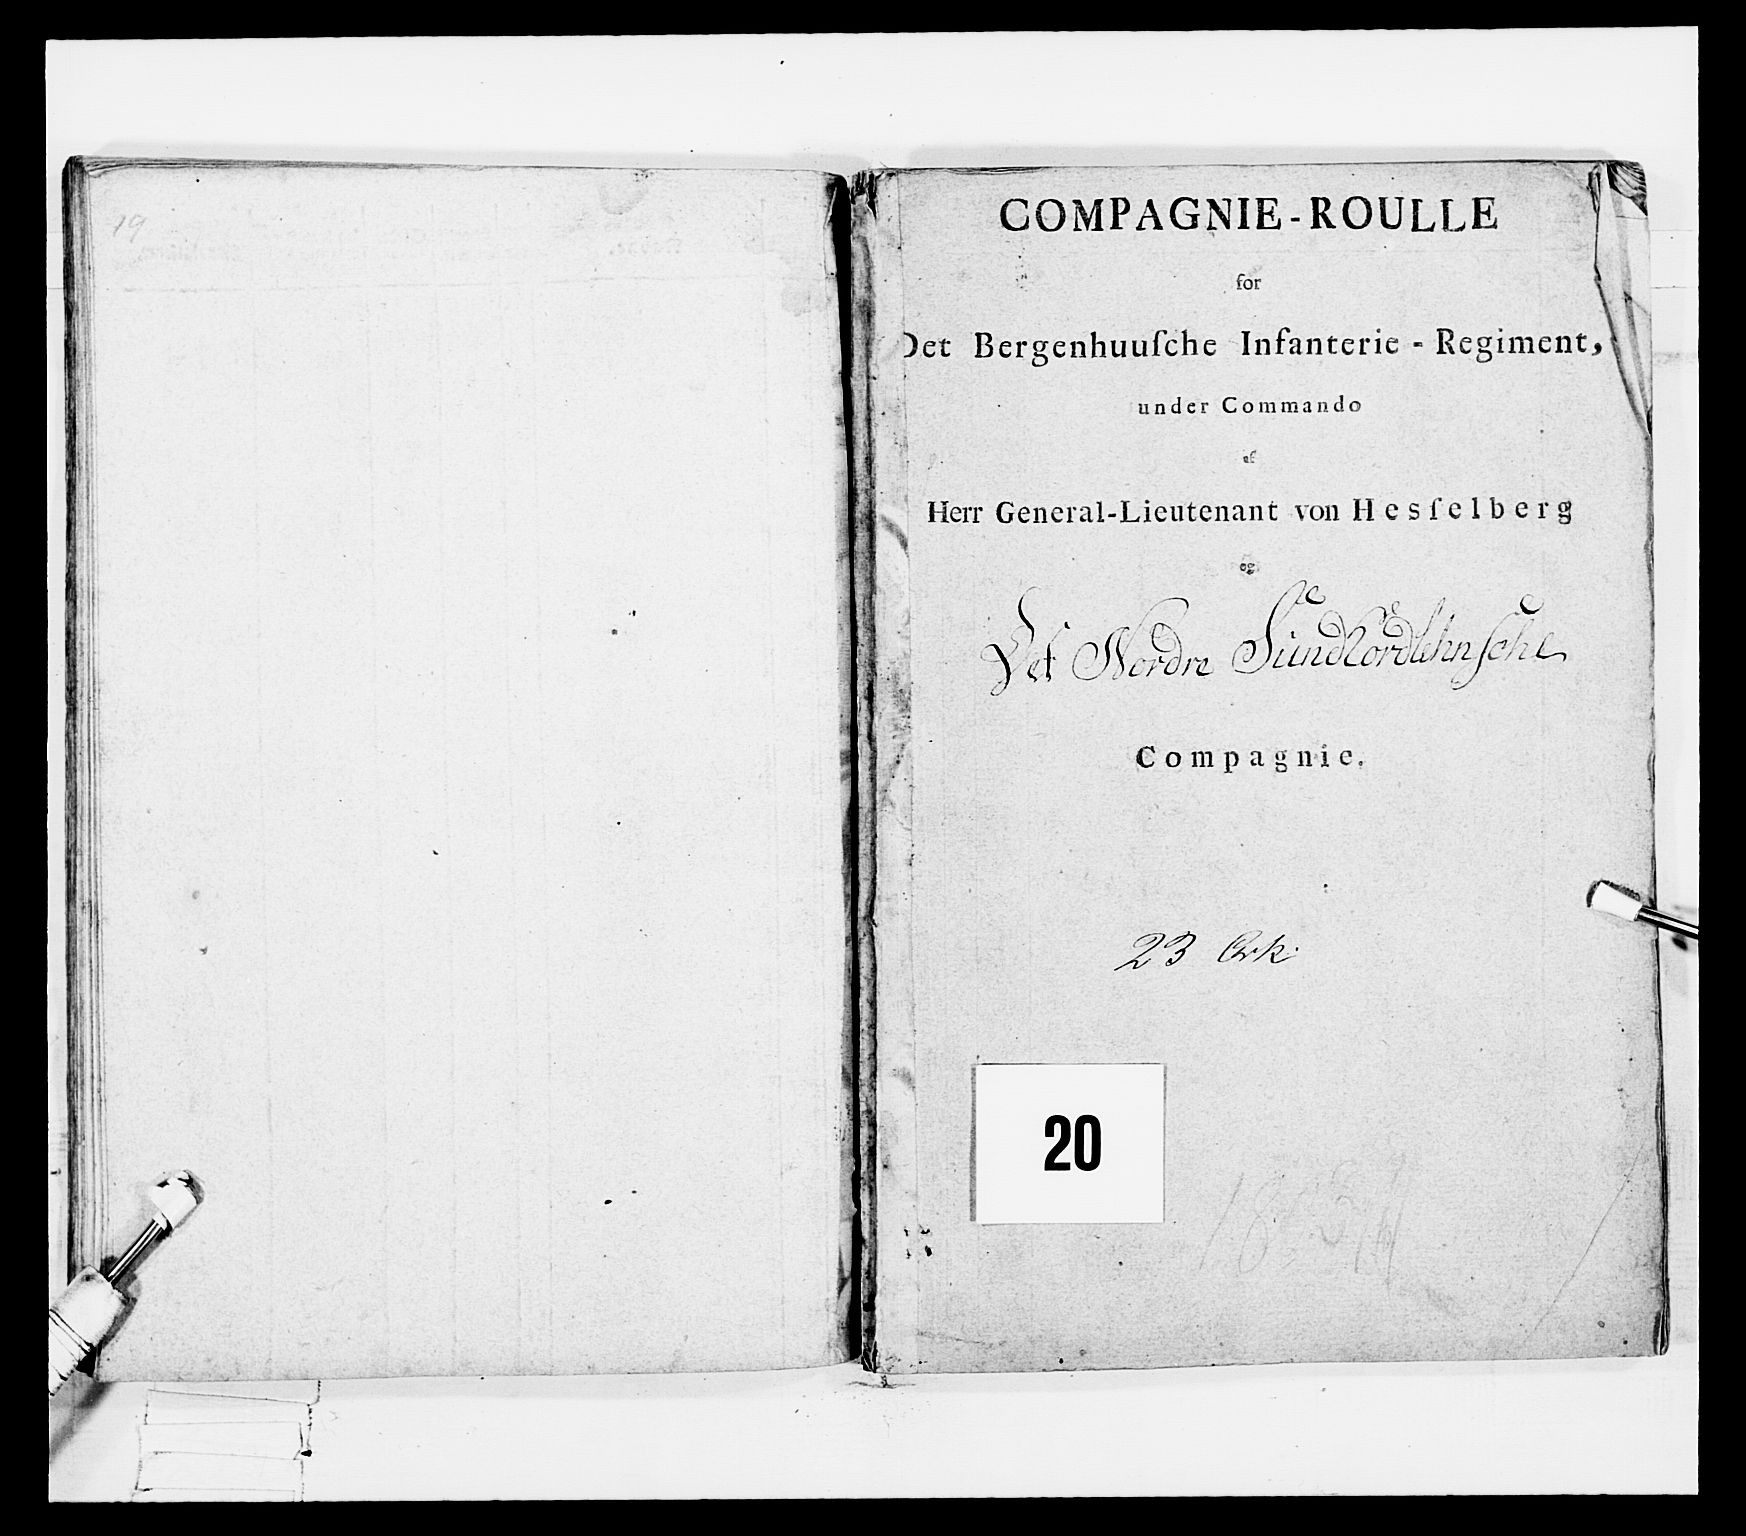 19
COMPAGNIE-ROULLE
for
Det Bergenhuuſche Infanterie-Regiment,
under Commando
af
Herr General-Lieutenant von Hesſelberg
og
Det Nordre Sündhordlehnsche
Compagnie.
23 Ark.
20